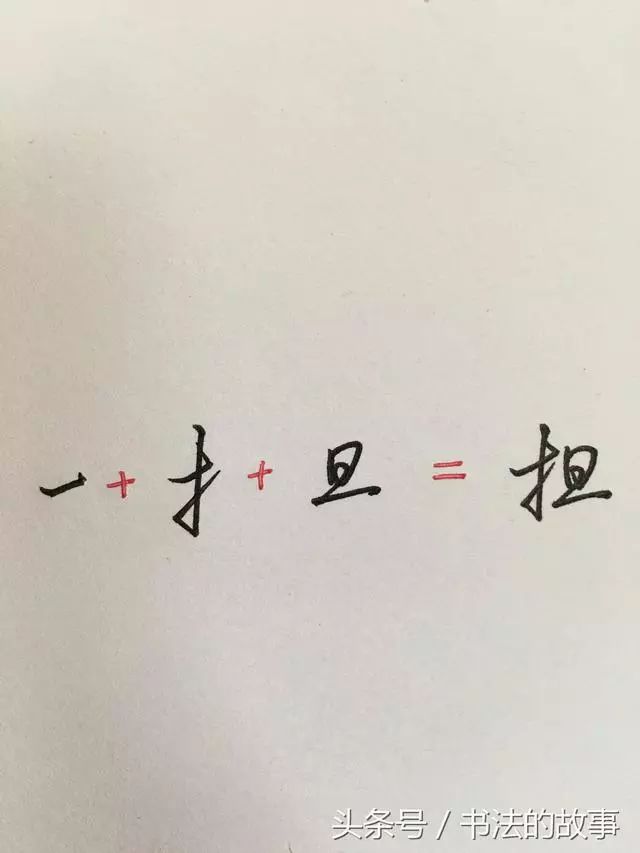 一 + 扌 + 旦 = 担
头条号 / 书法的故事